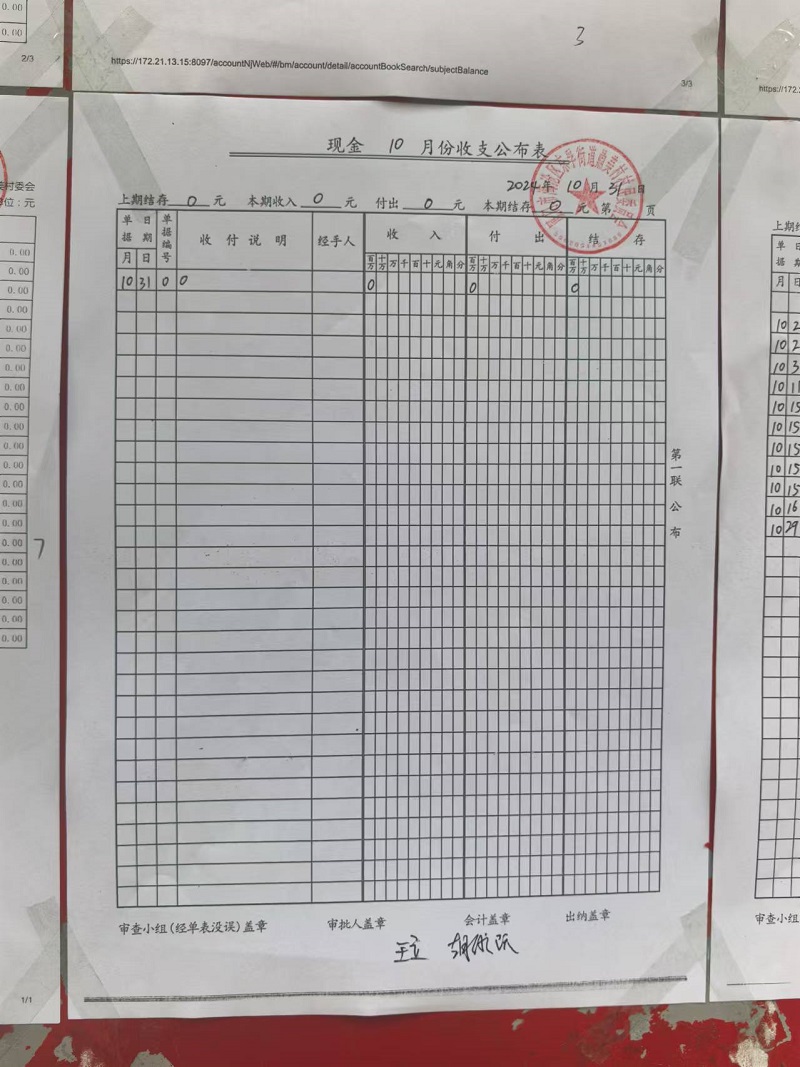 2/3
3
https://172.21.13.15:8097/accountNjWeb/#/bm/account/detail/accountBookSearch/subjectBalance
3/3
https://172.2
现金 10 月份收支公布表
2024年 10月 31日
上期结存 0 元 本期收入 0 元 付出 0 元 本期结存 0 元 第 页
单据 日期 单据编号 收付说明 经手人 收入 付出 结存
月 日 百万 十万 万 千 百 十 元 角 分 百万 十万 万 千 百 十 元 角 分 百万 十万 万 千 百 十 元 角 分
10 31 0 0 0 0 0
第一联 公布
审查小组(经单表没误)盖章 审批人盖章 会计盖章 出纳盖章
村委会
位：元
0.00
0.00
0.00
0.00
0.00
0.00
0.00
0.00
0.00
0.00
0.00
0.00
0.00
0.00
0.00
0.00
0.00
0.00
0.00
0.00
0.00
7
1/1
上期结
单据 日期
月 日
10 2
10 2
10 3
10 11
10 15
10 15
10 15
10 15
10 15
10 16
10 29
审查小组